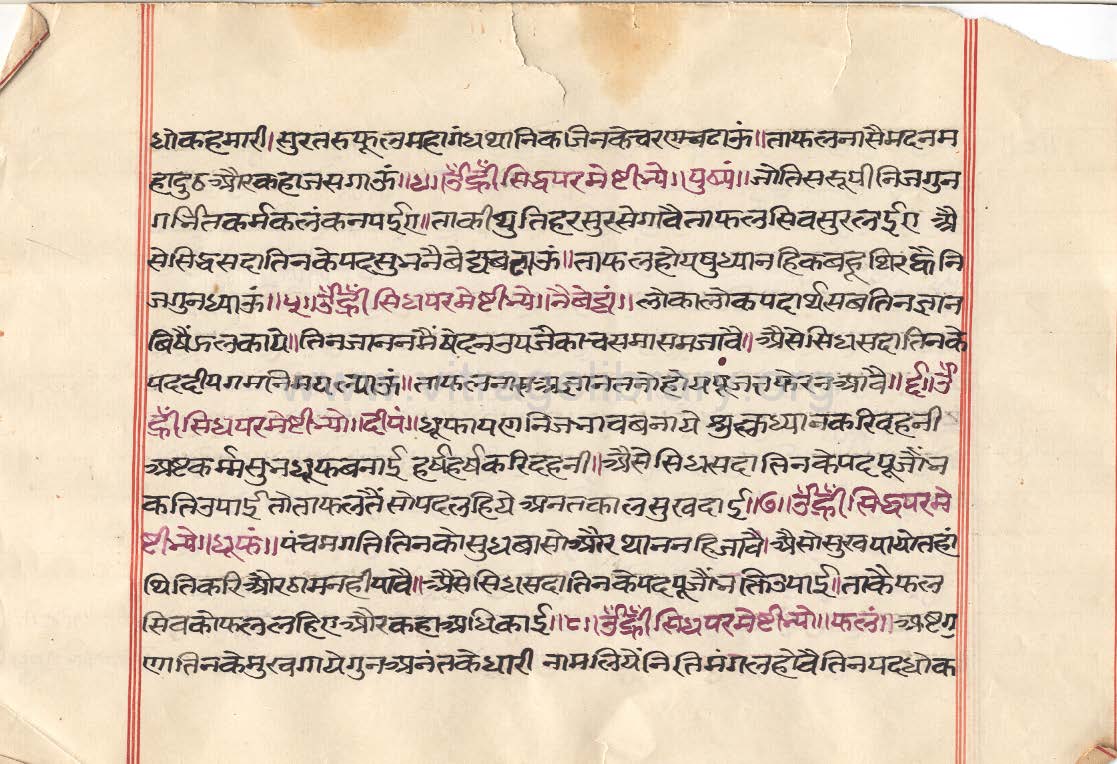 धोक हमारी। सुरतरु फूल महा गंध थानिक जिनके चरण चढाऊं॥ ता फल नासै मदन म
हादुठ और कहा जस गाऊं॥४॥ ॐ ह्रीं सिद्धपरमेष्टीभ्यो॥ पुष्पं॥ जोति सरूपी निज गुन
गर्भित कर्म कलंक न पईए॥ ताकी थुति हर सुर से गावै ता फल सिव सुर लईए अै
से सिद्ध सदा तिनके पद सुभ नैवेद्य चढाऊं॥ ता फल होय षुध्या नहि कबहू थिर ह्वै नि
ज गुन ध्याऊं॥५॥ ॐ ह्रीं सिधपरमेष्टीभ्यो॥ नैवेद्यं॥ लोकालोक पदार्थ सब तिन ज्ञान
बिषैं झलकाये॥ तिन जानन मैं षेद न उपजै काच समा सम जावै॥ अैसे सिध सदा तिनके
पद दीपग मनिमय ल्याऊं॥ ता फल नास अज्ञान तनो होय षुंज न फेर न आवै॥६॥ ॐ
ह्रीं सिधपरमेष्टीभ्यो॥ दीपं॥ धूफायण निज भाव बनाये शुक्ल ध्यान करि दहनी
अष्ट कर्म्म सुभ धूफ बनाई हर्ष हर्ष करि दहनी॥ अैसे सिध सदा तिनके पद पूजौं भ
कति उपाई तो ता फल तैं सो पद लहिये अनत काल सुखदाई॥७॥ ॐ ह्रीं सिद्धपरमे
ष्टीभ्यो॥ धूफं॥ पंचम गति तिनको सुध बासो और थान नहि जावै। अैसो सुख पायो तहां
थिति करि और ठाम नही पावै॥ अैसे सिध सदा तिनके पद पूजौं भक्ति उपाई॥ ताकै फल
सिव को फल लहिए और कहा अधिकाई॥८॥ ॐ ह्रीं सिधपरमेष्टीभ्यो॥ फलं॥ अष्ट ग
ण तिनके मुख गाये गुन अनंत के धारी नाम लियें निति मंगल होवै तिन पद धोक
www.vitragelibrary.org